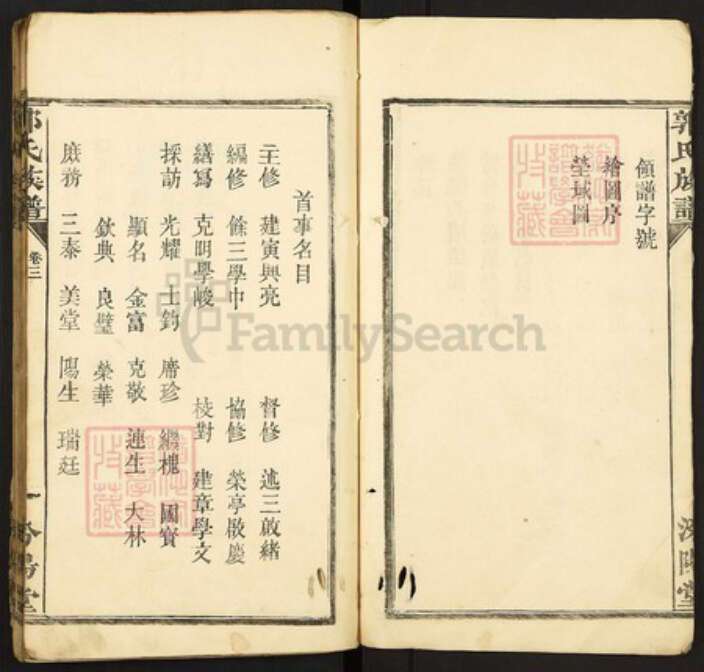 郭氏族譜
領譜字號
繪圖序
塋域圖
汾陽堂
首事名目
主修 建寅 興亮 督修 述三 啟緒
編修 餘三 學中 協修 榮亭 啟慶
繕寫 克明 學峻 校對 建章 學文
採訪 光耀 士鈞 席珍 繼槐 國賓
顯名 金富 克敬 連生 大林
欽典 良璧 榮華
庶務 三泰 美堂 陽生 瑞廷
郭氏族譜 卷三 一 汾陽堂
FamilySearch